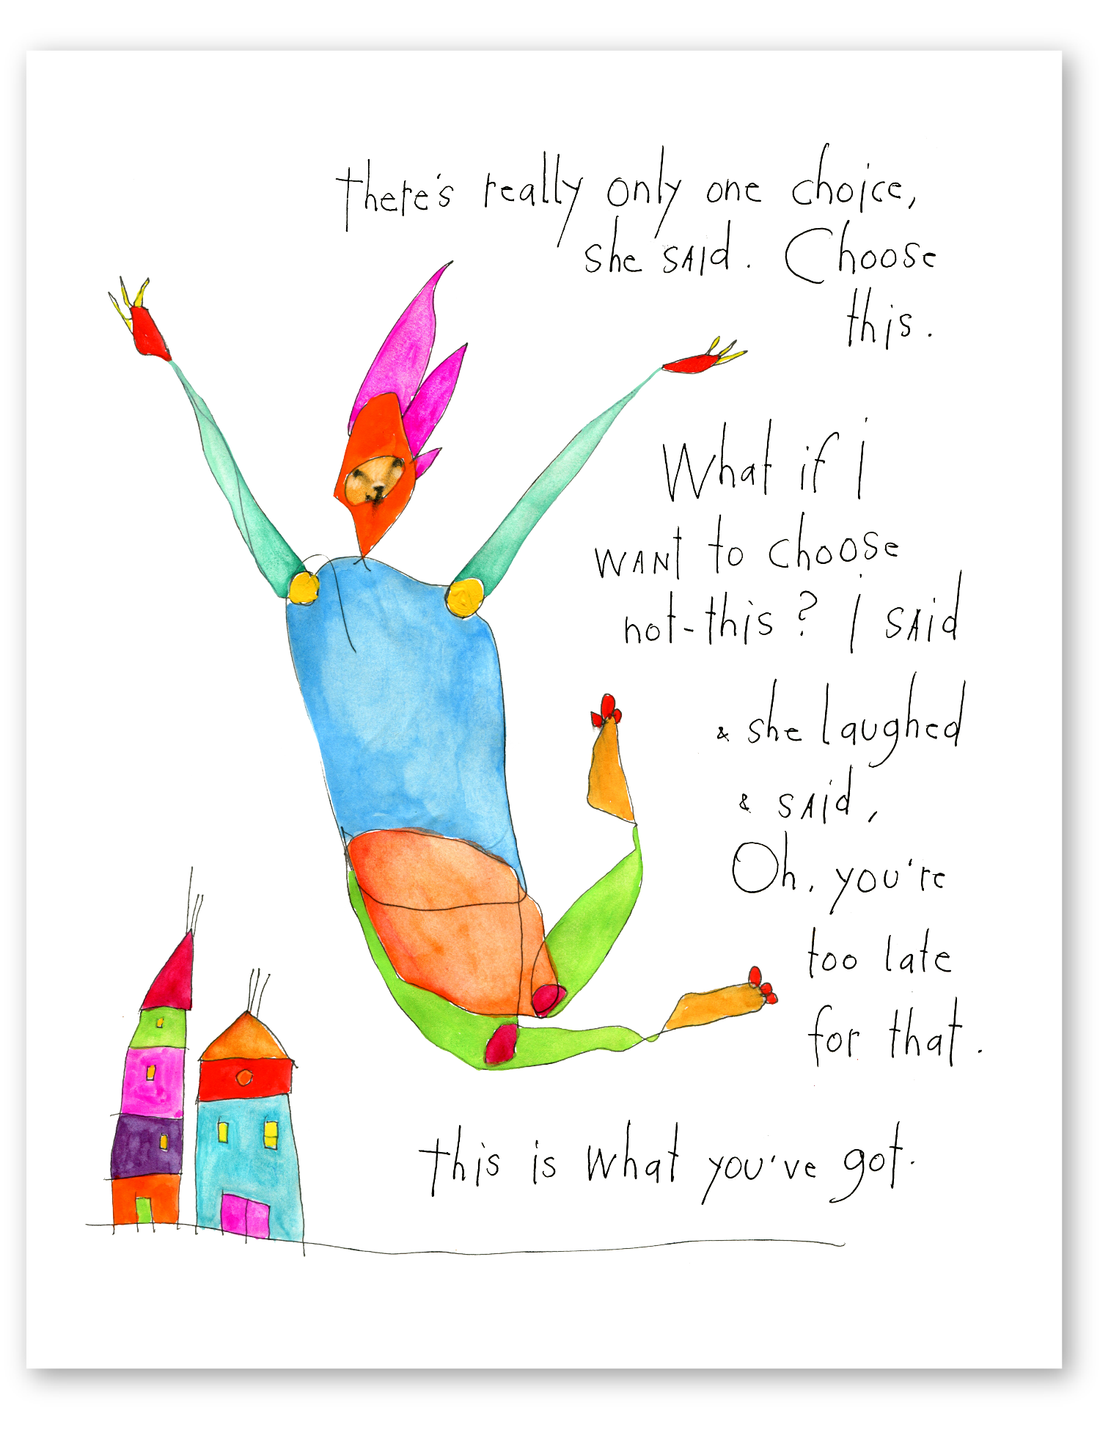 there's really only one choice,
she said. Choose
this.
What if I
want to choose
not-this? I said
& she laughed
& said,
Oh, you're
too late
for that.
this is what you've got.